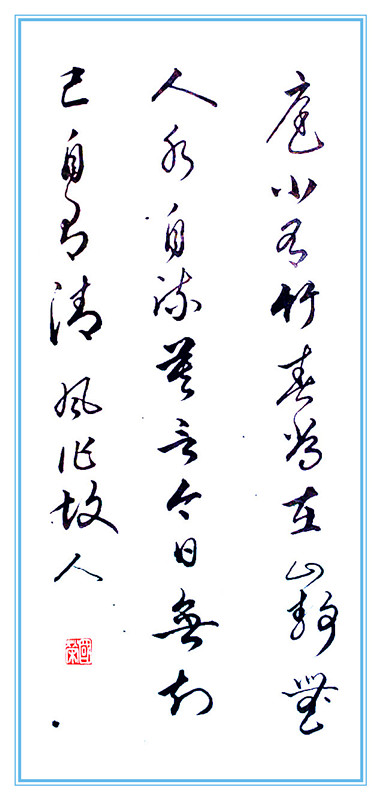 庭小有竹春常在山静無
人水自流莫言今日無知
己自有清風作故人